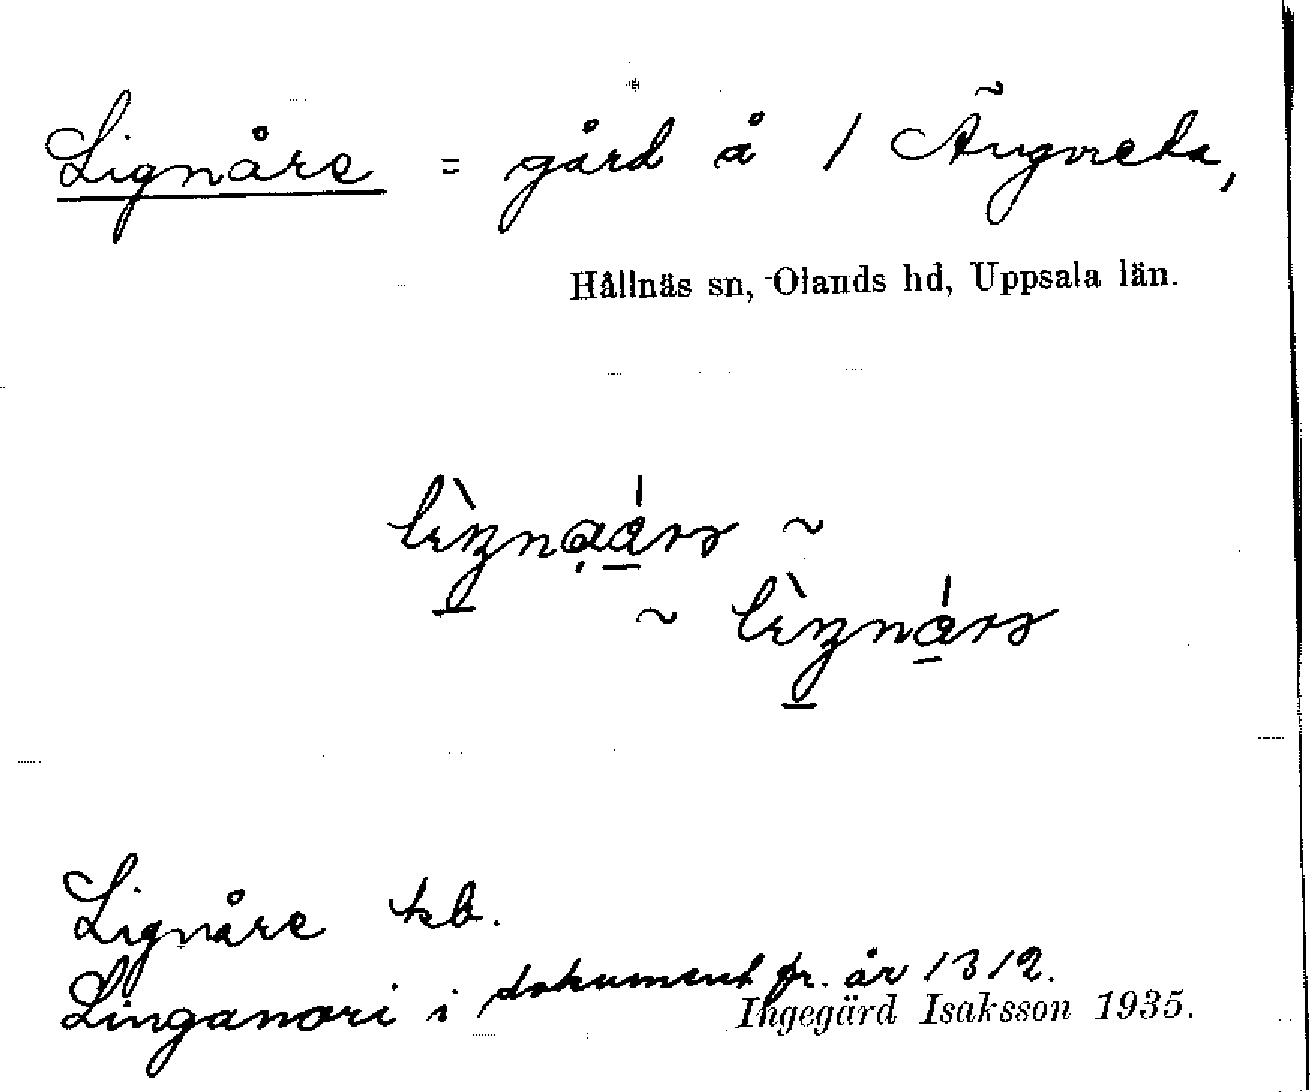 Lignåre = gård å 1 Ängvreta,
Hållnäs sn, Olands hd, Uppsala län.
~
~
Lignåre kb.
Linganori i dokument fr. år 1312.
Ingegärd Isaksson 1935.